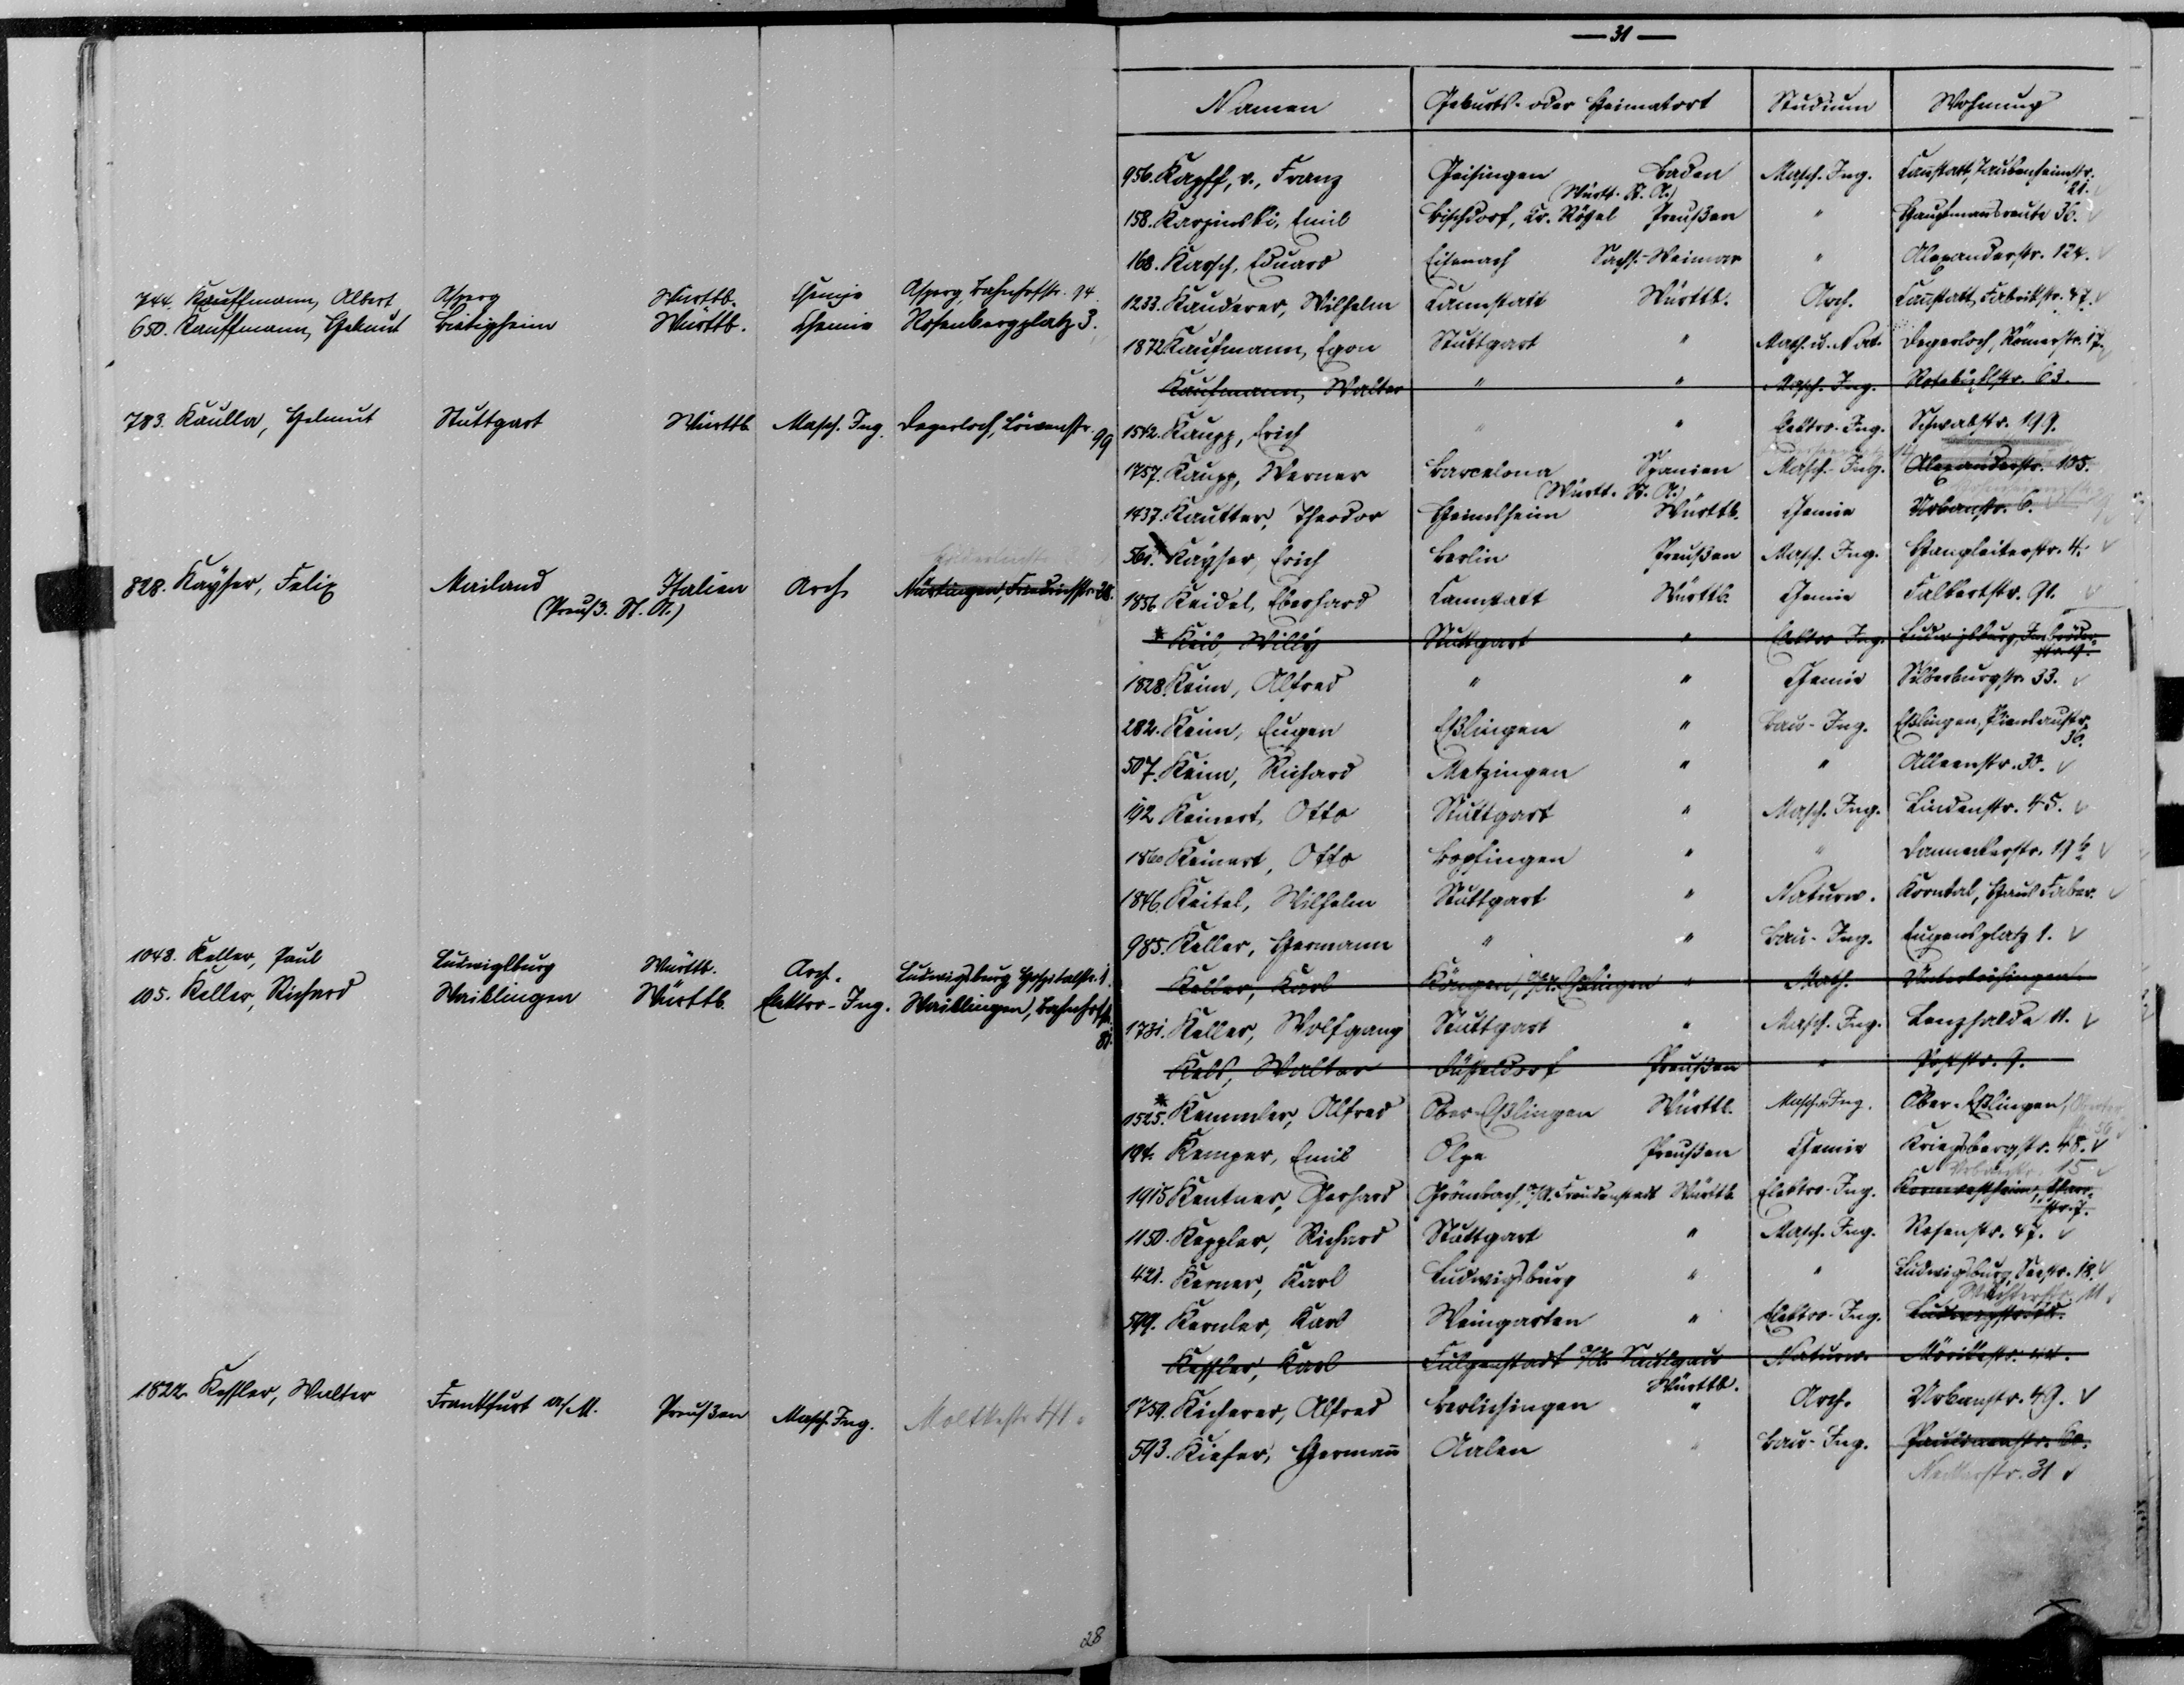 744. Kauffmann, Albert Asperg Württb. Chemie Asperg, Bahnhofstr. 94.
650. Kauffmann, Helmut Bietigheim Württb. Chemie Rosenbergplatz 3.
783. Kaulla, Helmut Stuttgart Württb. Masch. Ing. Degerloch, Löwenstr. 99
828. Kayser, Felix Mailand Italien Arch. Nürtingen, Friedrichstr. 28.
(Preuß. St. A.)
1048. Keller, Paul Ludwigsburg Württb. Arch. Ludwigsburg Hospitalstr. 1.
105. Keller, Richard Waiblingen Württb. Elektro-Ing. Waiblingen, Bahnhofstr.
1822. Kessler, Walter Frankfurt a/M. Preußen Masch. Ing. Moltkestr. 41.
28
— 31 —
Namen Geburts- oder Heimatort Studium Wohnung
956. Kapff, v., Franz Geisingen Baden Masch. Ing. Canstatt, Taubenheimstr. 21.
(Württ. St. A.)
158. Karzinski, Emil Bischdorf, Kr. Preußen " Hauptmannsreute 36.
168. Kasch, Eduard Eisenach Sachs.-Weimar " Alexanderstr. 124.
1233. Kauderer, Wilhelm Cannstatt Württb. Arch. Canstatt, Fabrikstr. 47.
1872 Kaufmann, Egon Stuttgart " Math. u. Nat. Degerloch, Römerstr. 17.
Kaufmann, Walter " " Masch. Ing. Rotebühlstr. 63.
1542. Kaupp, Erich " " Elektro-Ing. Schwabstr. 199.
1757. Kaupp, Werner Barcelona Spanien Masch.-Ing. Alexanderstr. 105.
(Württ. St. A.)
1437. Kautter, Theodor Heimsheim Württb. Chemie Urbanstr. 6.
561. Kayser, Erich Berlin Preußen Masch. Ing. Hangleiterstr. 4.
1856 Keidel, Eberhard Cannstatt Württb. Chemie Falkertstr. 91.
* Keil, Willy Stuttgart " Elektro Ing. Ludwigsburg,
1828. Keim, Alfred " " Chemie Silberburgstr. 33.
282. Keim, Eugen Eßlingen " Bau-Ing. Eßlingen, Plienßaustr. 36.
507. Keim, Richard Metzingen " " Alleenstr. 30.
192 Keinert, Otto Stuttgart " Masch. Ing. Lindenstr. 45.
1860 Keinert, Otto Bopfingen " " Danneckerstr. 19 b
1846. Keitel, Wilhelm Stuttgart " Naturw. Korntal, Haus Faber.
985. Keller, Hermann " " Bau-Ing. Eugensplatz 1.
Keller, Karl Köngen, OA. Eßlingen " Math. Unterboihingen
1731. Keller, Wolfgang Stuttgart " Masch. Ing. Lenzhalde 11.
Walter Düsseldorf Preußen " 9.
* 1525. Kemmler, Alfred Ober-Eßlingen Württb. Masch. Ing. Ober-Eßlingen,
194. Kemper, Emil Olpe Preußen Chemie Kriegsbergstr. 45.
15
1915 Kentner, Gerhard Grömbach, OA. Freudenstadt Württb. Elektro-Ing. Kornwestheim, str. 7.
1150. Keppler, Richard Stuttgart " Masch. Ing. Rosenstr. 47.
421. Kerner, Karl Ludwigsburg " " Ludwigsburg, Seestr. 18.
Wächterstr. 11.
599. Kernler, Karl Weingarten " Elektro-Ing.
Kessler, Karl Fulgenstadt OA. Saulgau Naturw. Mörikestr. 44.
Württb.
1759. Kicherer, Alfred Berlichingen " Arch. Urbanstr. 49.
593. Kiefer, Hermann Aalen " Bau-Ing. Paulinenstr. 60.
Neckarstr. 31